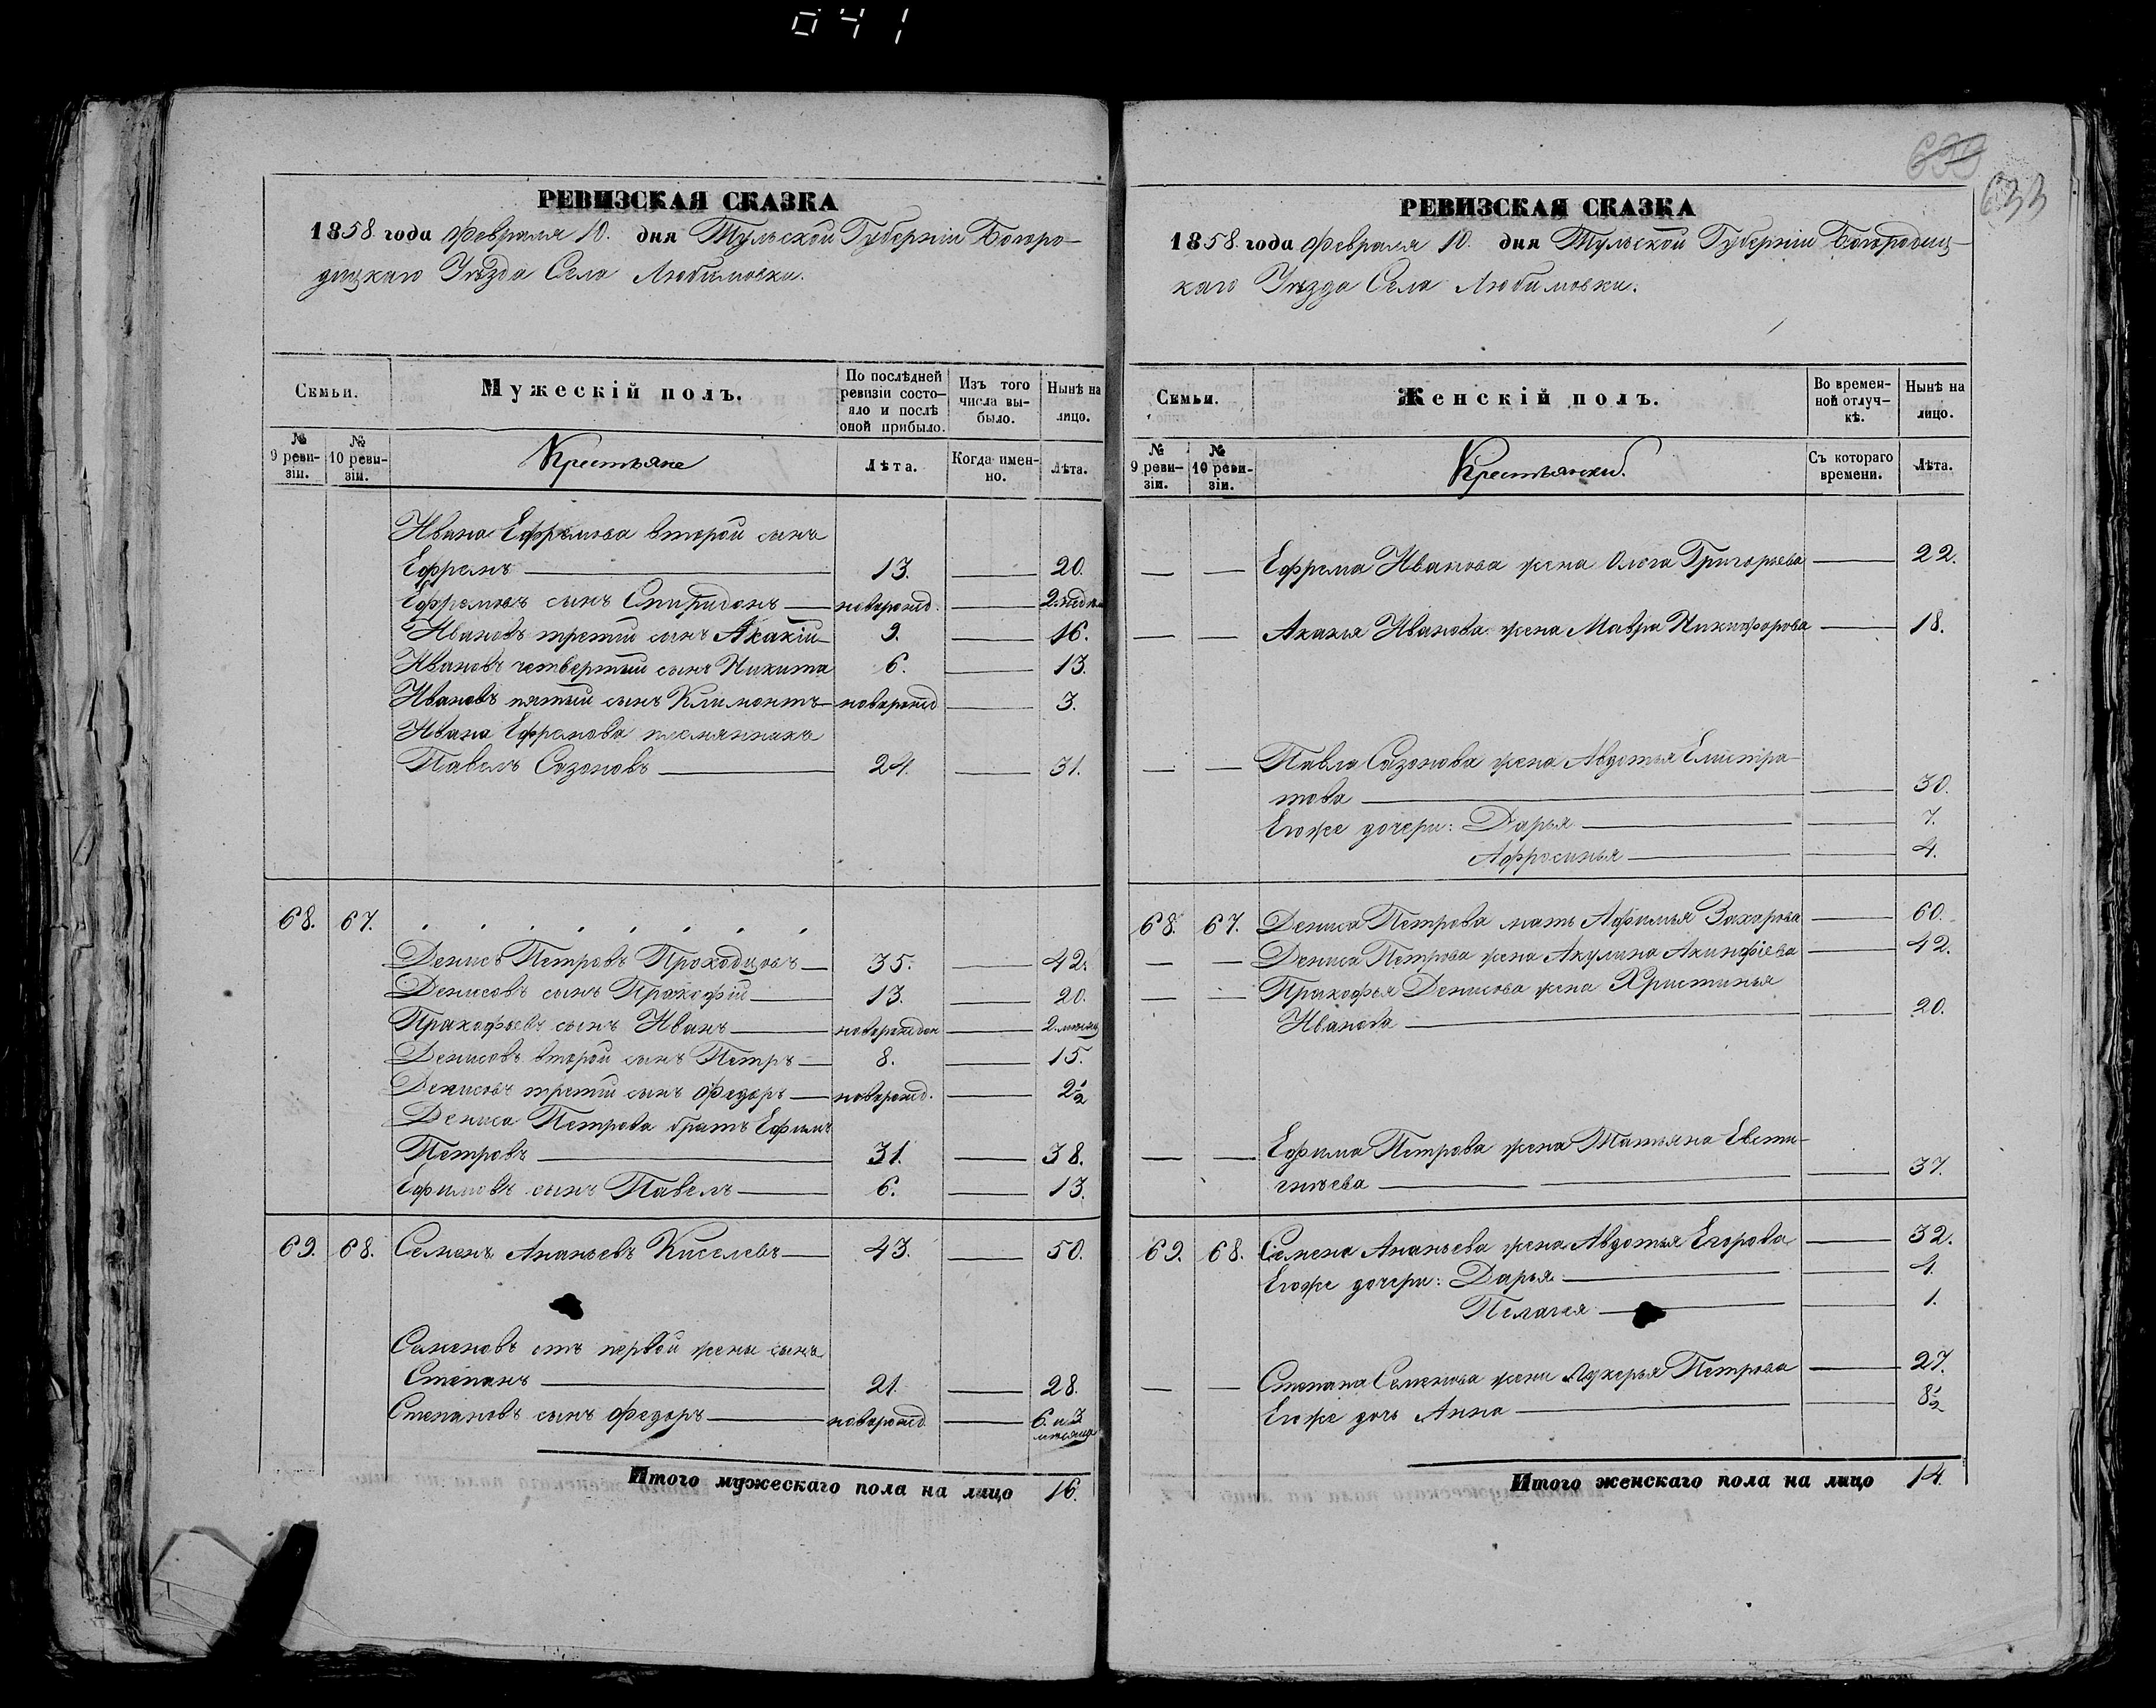 041
РЕВИЗСКАЯ СКАЗКА
1858 года Февраля 10. дня Тульской Губерніи Богоро-
дицкаго Уѣзда Села Любимовки.
Семьи.
Мужескій полъ.
По послѣдней ревизіи состо-яло и послѣ оной прибыло.
Изъ того числа вы-было.
Нынѣ на лицо.
№ 9 реви-зіи.
№ 10 реви-зіи.
Крестьяне
Лѣта.
Когда имен-но.
Лѣта.
Ивана Ефремова второй сынъ
Ефремъ 13. 20.
Ефремовъ сынъ Спиридонъ новорожд. 2
Ивановъ третій сынъ Акакій 9. 16.
Ивановъ четвертый сынъ Никита 6. 13.
Ивановъ пятый сынъ Климонтъ новорожд 3.
Ивана Ефремова племянникъ
Павелъ Сазоновъ 24. 31.
68. 67.
Денисъ Петровъ Проходцовъ 35. 42.
Денисовъ сынъ Пракофій 13. 20.
Пракофьевъ сынъ Иванъ новорожден 2. месяц
Денисовъ второй сынъ Петръ 8. 15.
Денисовъ третій сынъ Федоръ новорожд. 2½
Дениса Петрова братъ Ефимъ
Петровъ 31. 38.
Ефимовъ сынъ Павелъ 6. 13.
69. 68. Семенъ Ананьевъ Киселевъ 43. 50.
Семеновъ отъ первой жены сынъ
Степанъ 21. 28.
Степановъ сынъ Федоръ новорожд 6. и 3
месяца
Итого мужескаго пола на лицо 16.
639
633
РЕВИЗСКАЯ СКАЗКА
1858 года Февраля 10. дня Тульской Губерніи Богородиц-
каго Уѣзда Села Любимовки.
Семьи.
Женскій полъ.
Во времен-ной отлуч-кѣ.
Нынѣ на лицо.
№ 9 реви-зіи.
№ 10 реви-зіи.
Крестьянки.
Съ котораго времени.
Лѣта.
Ефрема Иванова жена Олга Григорьева 22.
Акакія Иванова жена Мавра Никифорова 18.
Павла Сазонова жена Авдотья Елистра-
това 30.
Егоже дочери: Дарья 7.
Афросинья 4.
68. 67. Дениса Петрова мать Афимья Захарова 60.
Дениса Петрова жена Акулина Акинфіева 42.
Пракофья Денисова жена Христинья
Иванова 20.
Ефима Петрова жена Татьяна Евсти-
гнѣева 37.
69. 68. Семена Ананьева жена Авдотья Егорова 32.
Егоже дочери: Дарья 4.
Пелагея 1.
Степана Семенова жена Лукерья Петрова 27.
Егоже дочь Анна 8½
Итого женскаго пола на лицо 14.